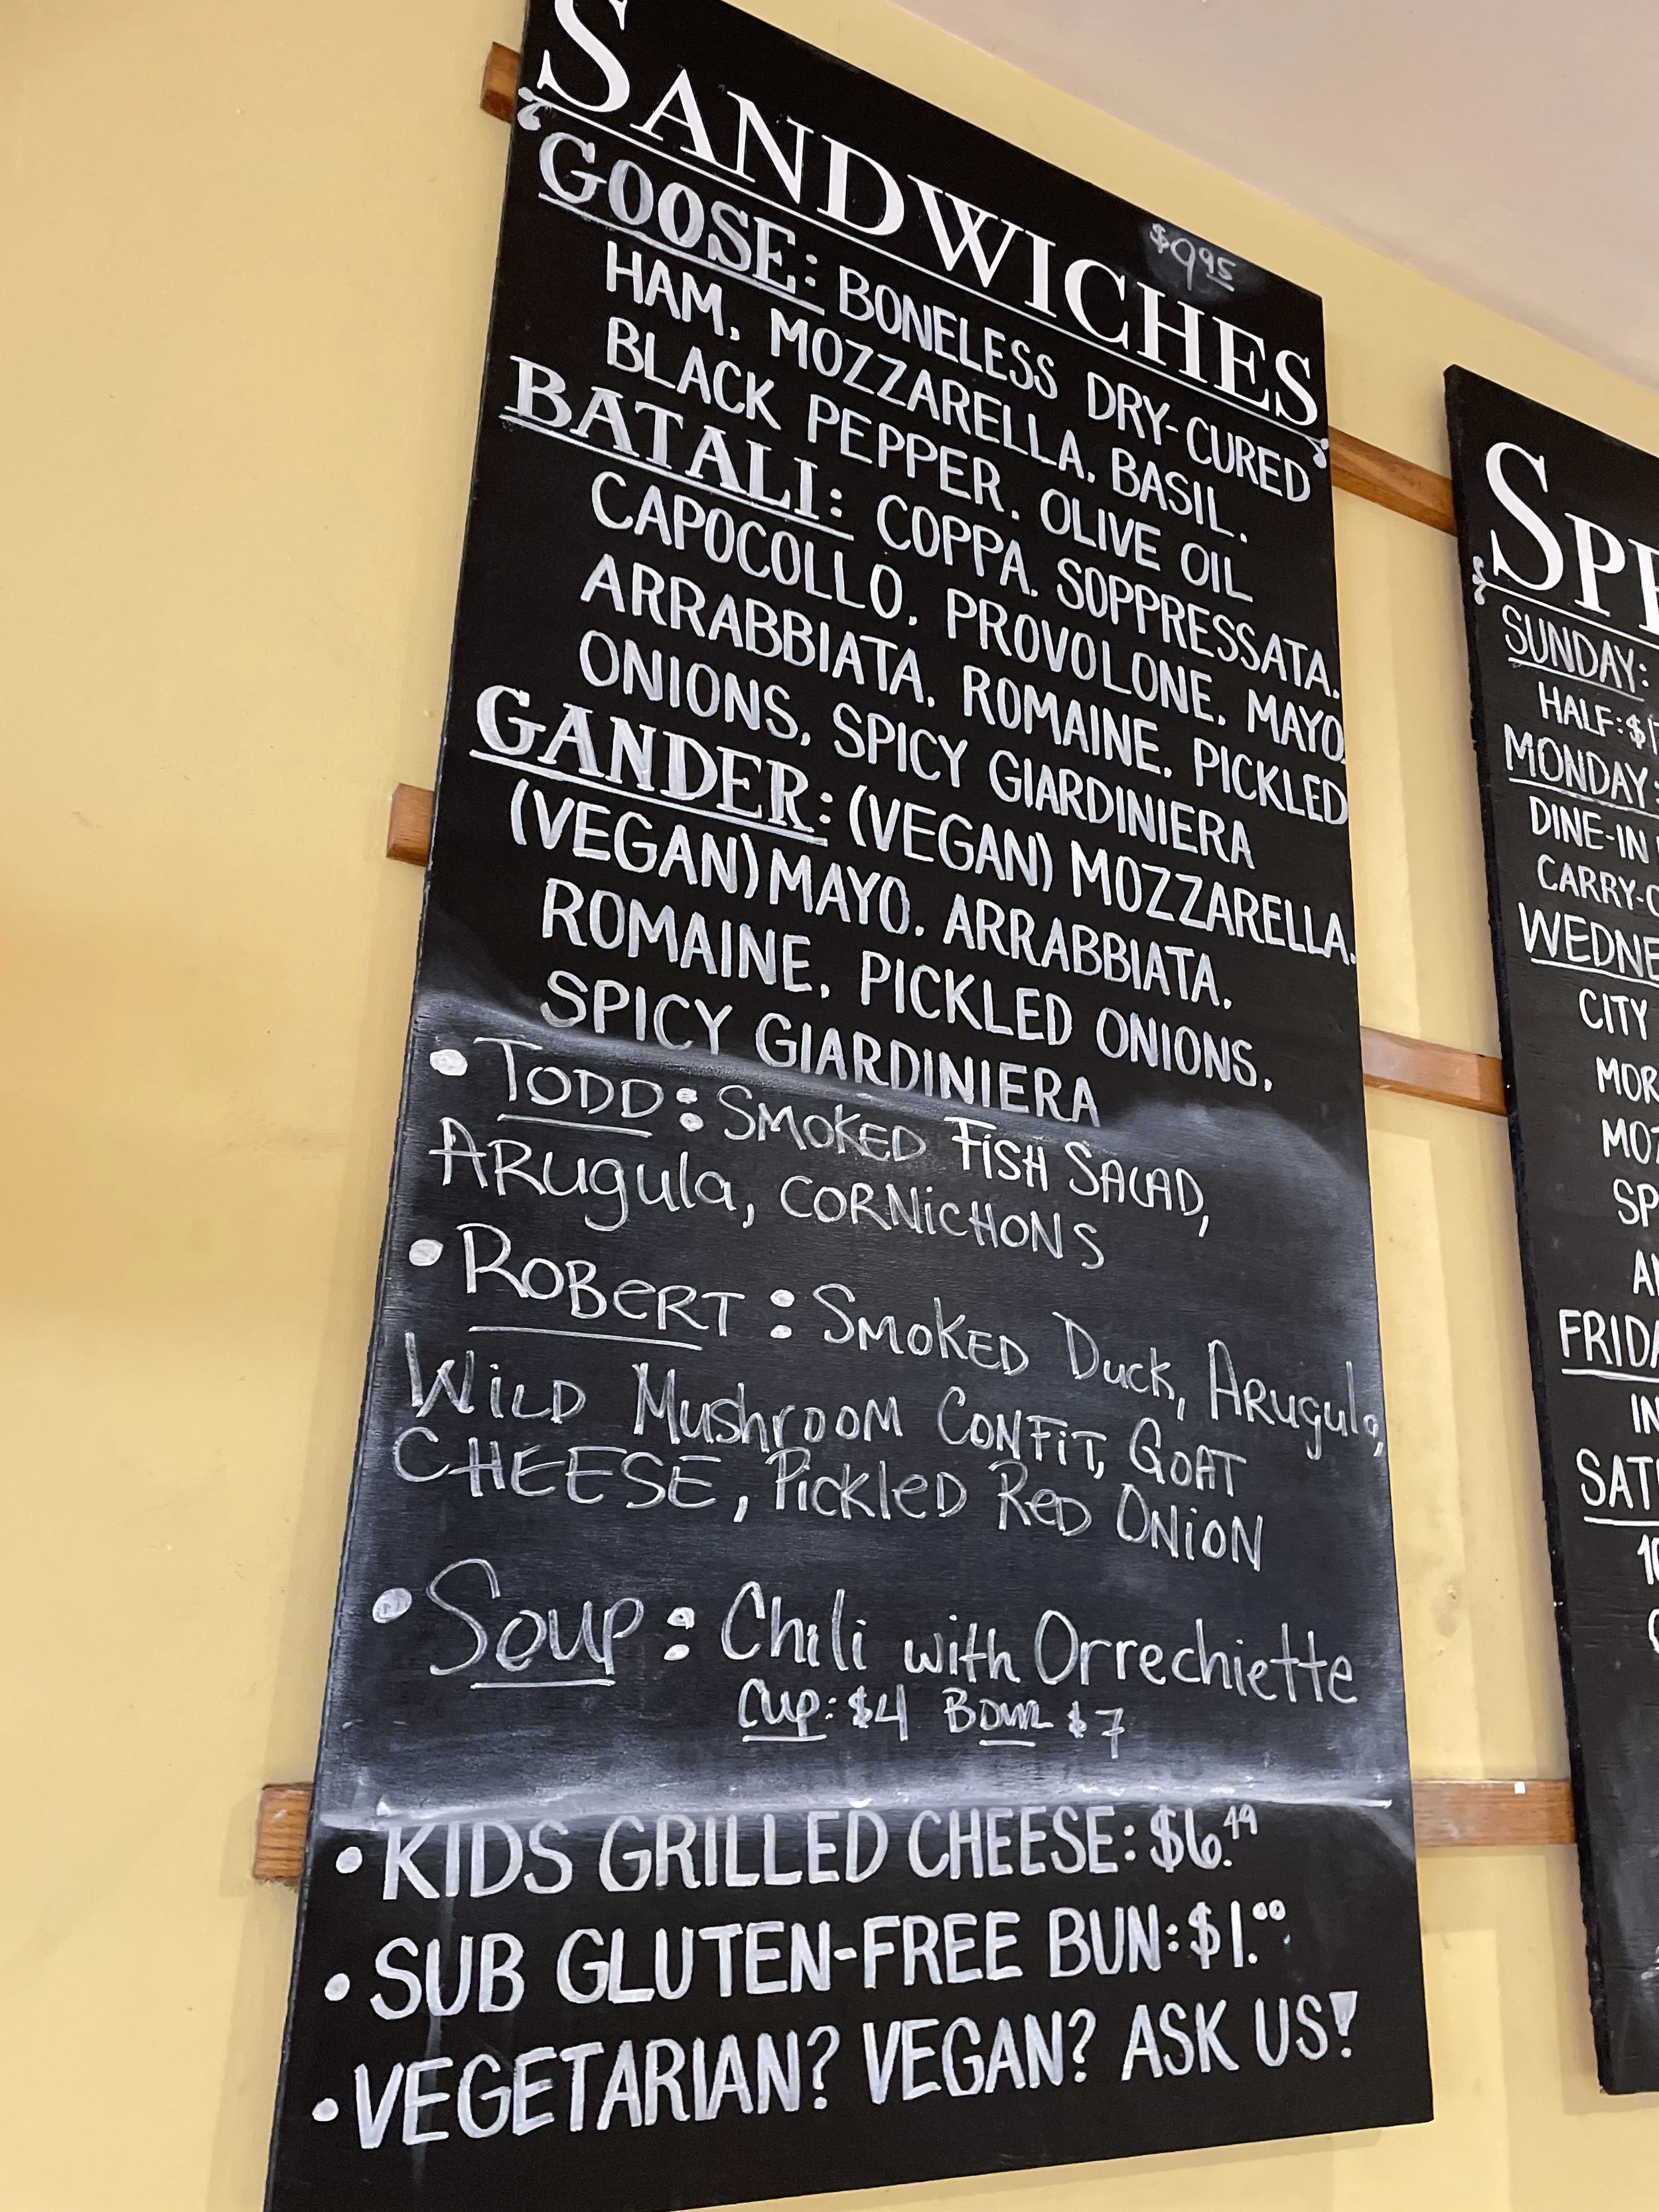 SANDWICHES
$9.95
GOOSE: BONELESS DRY-CURED
HAM, MOZZARELLA, BASIL,
BLACK PEPPER, OLIVE OIL
BATALI: COPPA, SOPPRESSATA,
CAPOCOLLO, PROVOLONE, MAYO,
ARRABBIATA, ROMAINE, PICKLED
ONIONS, SPICY GIARDINIERA
GANDER: (VEGAN) MOZZARELLA,
(VEGAN) MAYO, ARRABBIATA,
ROMAINE, PICKLED ONIONS,
SPICY GIARDINIERA
• TODD: SMOKED FISH SALAD,
ARugula, CORNiCHONS
• ROBeRT: SMOKED Duck, ARugula,
WiLD MushrooM CONFiT, GOAT
CHEESE, PickleD ReD ONiON
• Soup: Chili with Orrechiette
Cup: $4 Bowl $7
• KIDS GRILLED CHEESE: $6.49
• SUB GLUTEN-FREE BUN: $1.00
• VEGETARIAN? VEGAN? ASK US!
SPE
SUNDAY:
HALF: $1
MONDAY:
DINE-IN
CARRY-O
WEDNE
CITY
MOR
MOZ
SP
A
FRIDA
IN
SAT
10